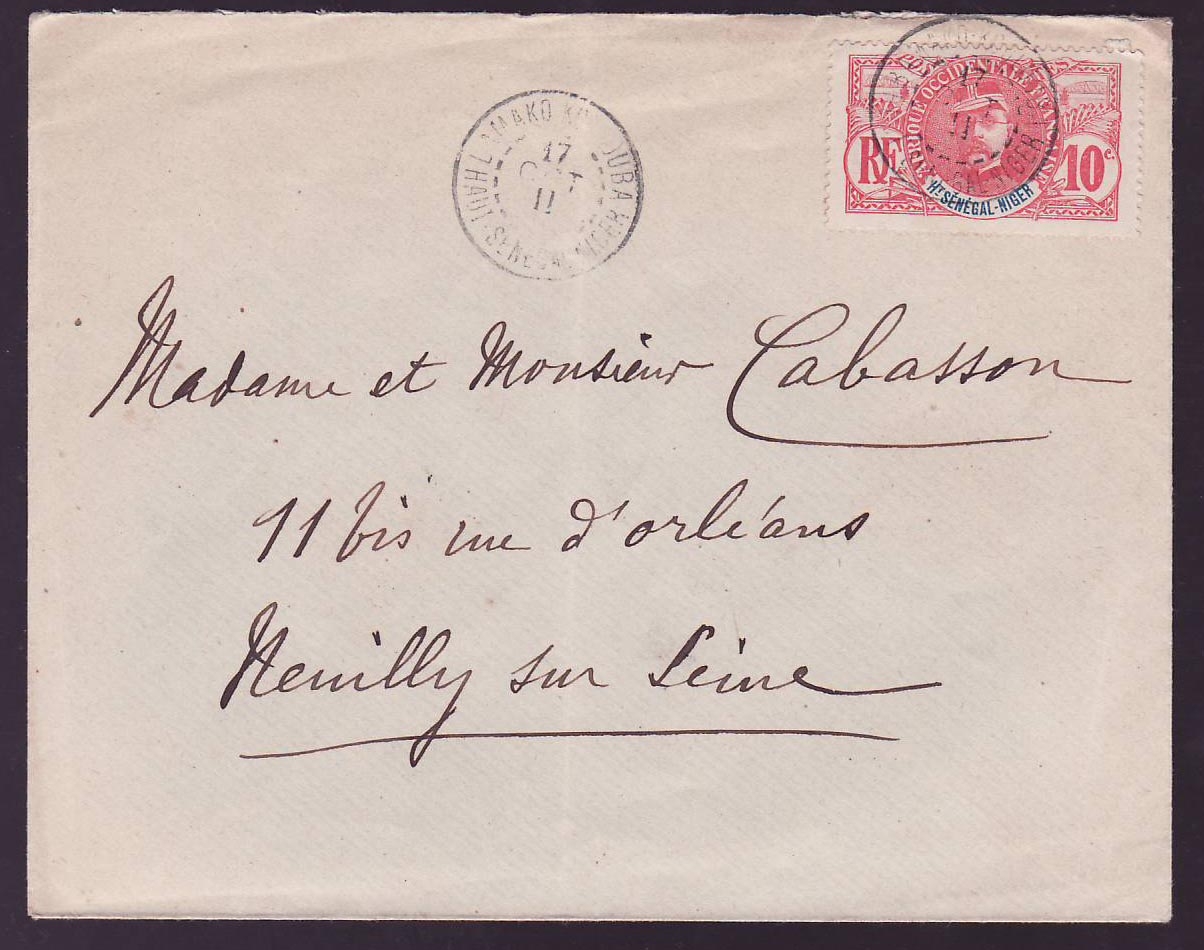 17
11
HAUT-SÉNÉGAL-NIGER
AFRIQUE OCCIDENTALE FRANÇAISE
RF
10c.
Ht SÉNÉGAL-NIGER
17
11
Madame et Monsieur Cabasson
11 bis rue d'orléans
Neuilly sur Seine